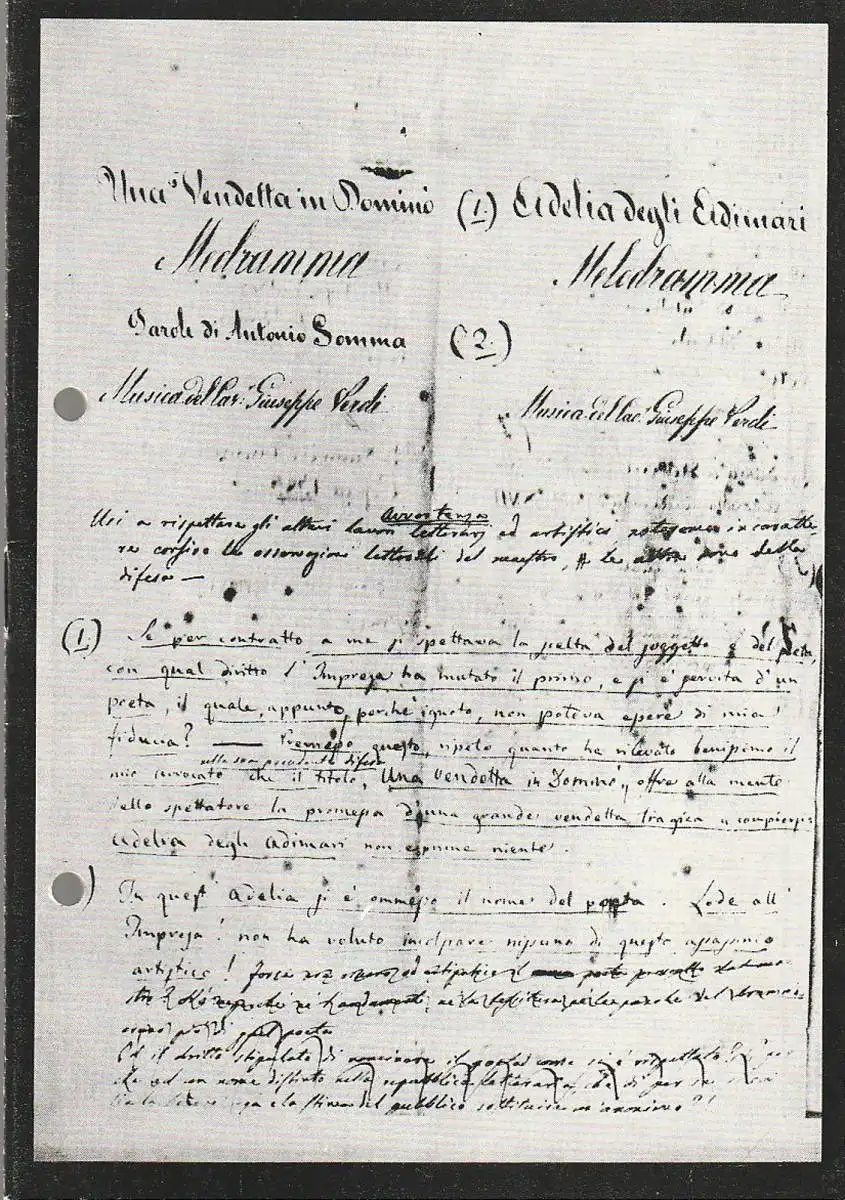 Una Vendetta in Dominò (1.) Adelia degli Adimari
Medramma Melodramma
Parole di Antonio Somma (2.)
Musica del Cav: Giuseppe Verdi Musica del Cav: Giuseppe Verdi
Avvertenza
a rispettare gli altrui lavori letterarj ed artistici in caratte-
re corsivo le osservazioni letterali del maestro, le altre sono della
difesa —
(1.) Se per contratto a me si spettava la scelta del soggetto e del poeta,
con qual diritto l'Impresa ha mutato il primo, e si è servita d'un
poeta, il quale, appunto, perchè ignoto, non poteva essere di mia
fiducia? — Premesso questo, ripeto quanto ha rilevato benissimo il
nella sua precedente difesa
mio avvocato che il titolo, Una vendetta in Dominò, offre alla mente
dello spettatore la promessa d'una grande vendetta tragica a compiersi
Adelia degli Adimari non esprime niente.
) In quest'Adelia si è ommesso il nome del poeta. Lode all'
Impresa! non ha voluto incolpare nissuno di questo assassinio
artistico! Forse
del poeta
Ed il dritto stipulato di nominare il poeta come si è rispettato?
ad un nome distinto nella repubblica letteraria, che di per se
e la stima del pubblico sostituire un anonimo?!